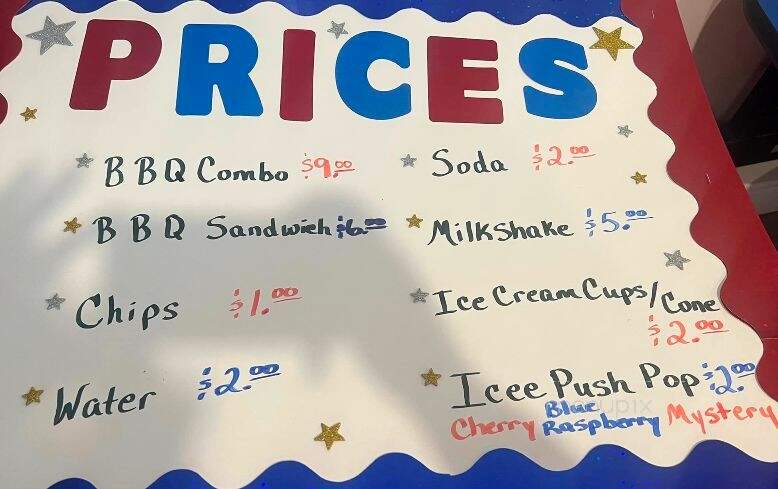 PRICES
BBQ Combo $9.00
BBQ Sandwich $6.00
Chips $1.00
Water $2.00
Soda $2.00
Milkshake $5.00
Ice Cream Cups/Cone
$2.00
Icee Push Pop $2.00
Cherry Blue Raspberry Mystery